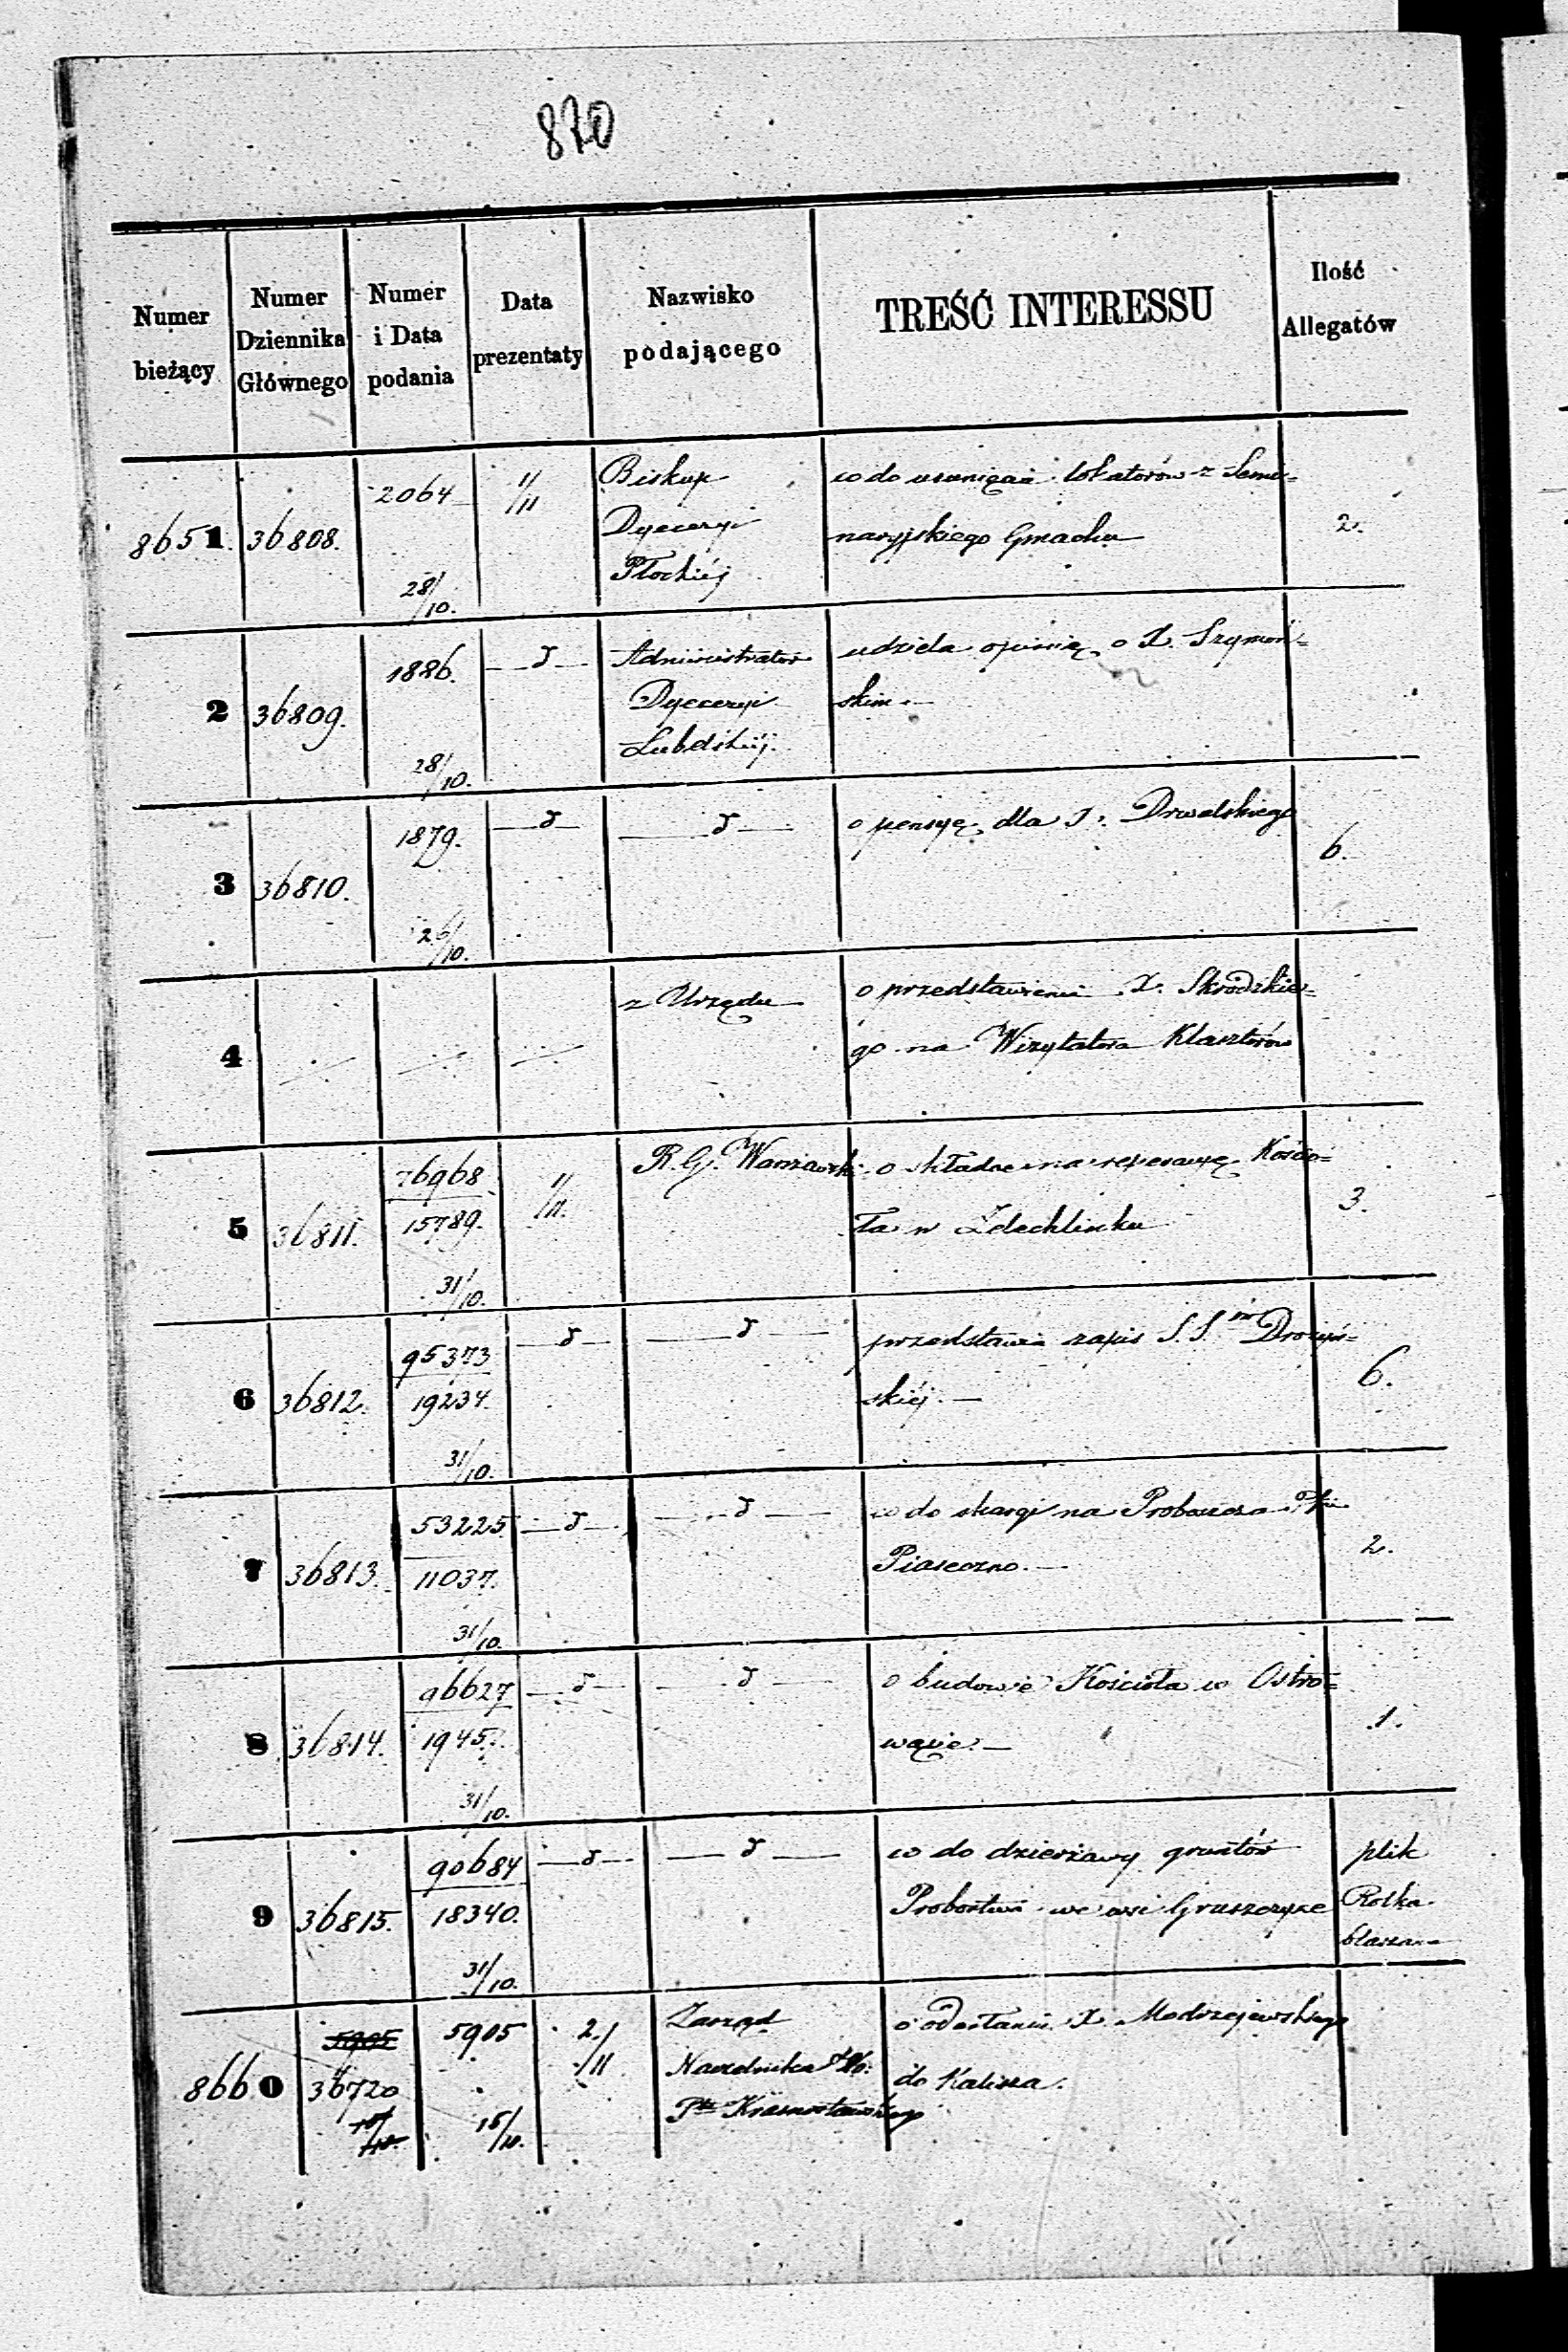 870
Numer bieżący
Numer Dziennika Głównego
Numer i Data podania
Data prezentaty
Nazwisko podającego
TREŚĆ INTERESSU
Ilość Allegatów
8651. 36808. 2064 28/10. 1/11
Biskup
Dyecezyi
Płockiéj
co do usunięcia lokatorów z Semi=
naryjskiego Gmachu
2.
2 36809. 1886. 28/10. —d—
Administrator
Dyecezyi
Lubelskiéj.
udziela opinię o X. Szymoń=
skim.—
3 36810. 1879. 26/10. —d— —d—
o pensyę dla X. Drwalskiego
6.
4
z Urzędu
o przedstawienie X. Skrodzkie=
go na Wizytatora Klasztorów
5 36811. 76968 15789. 31/10. 1/11.
R. G. Warszawski
o składce na reperacyę Kościo=
ła w Żelechlinku
3.
6 36812. 95373 19234. 31/10. —d— —d—
przedstawia zapis S. S.
skiéj.—
6.
7 36813. 53225 11037. 31/10. —d— —d—
co do skargi na Proboszcza
Piaseczno.—
2.
8 36814. 96627 1945 31/10. —d— —d—
o budowie Kościoła w Ostro=
wąsie.—
1.
9 36815. 90684 18340. 31/10. —d— —d—
co do dzierżawy gruntów
Probostwa we wsi Gruszczyce
plik
Rolka
blaszana
8660 5905 36720 5905 15/10. 2/11
Zarząd
Naczelnika
Ptu Krasnostawskiego
o odesłanie X. Modrzejewskiego
do Kalisza.